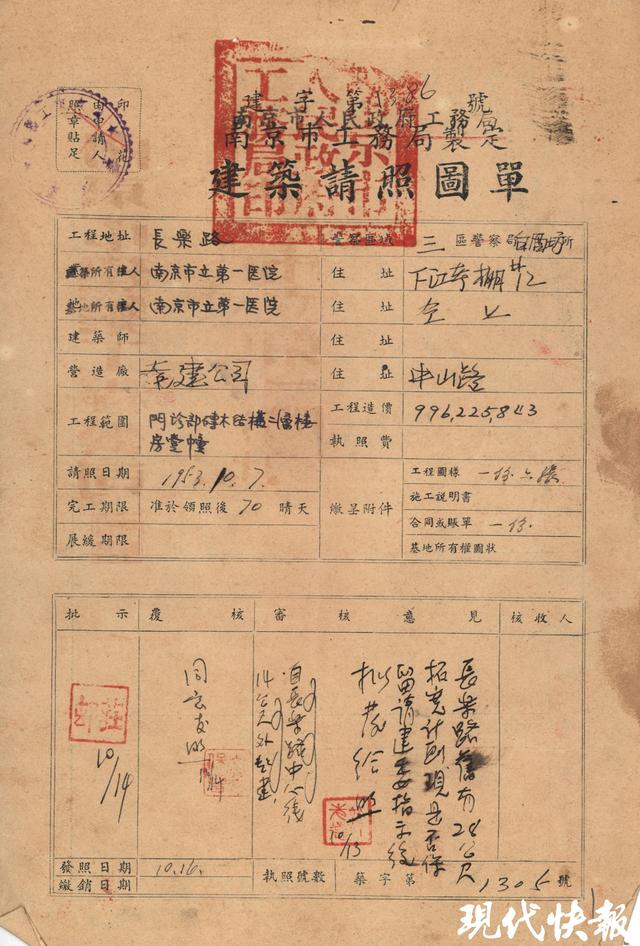 印花
由申請人
照章貼足
建字第 86 號
南京市人民政府工務局
南京市工務局製定
建築請照圖單
工程地址 長樂路 警察區域 三 區警察局 所
建築所有權人 南京市立第一医院 住址
基地所有權人 南京市立第一医院 住址 仝上
建築師 住址
營造廠 公司 住址 中山路
工程範圍 門診部磚木結構二層樓房壹幢 工程造價 996,225,843
執照費
請照日期 1953.10.7. 繳呈附件 工程圖樣 一份六張
完工期限 准於領照後 70 晴天 施工說明書
展緩期限 合同或賬單 一份.
基地所有權圖狀
批示 覆核 審核意見 核收人
長樂路舊有28公尺
拓寬計劃現是否保
留請建委指示後
批發給照
10/13
自長樂路中心線
14公尺外起建
同意发照
10/14
發照日期 10.16. 執照號數 築字第 1305 號
繳銷日期
現代快報